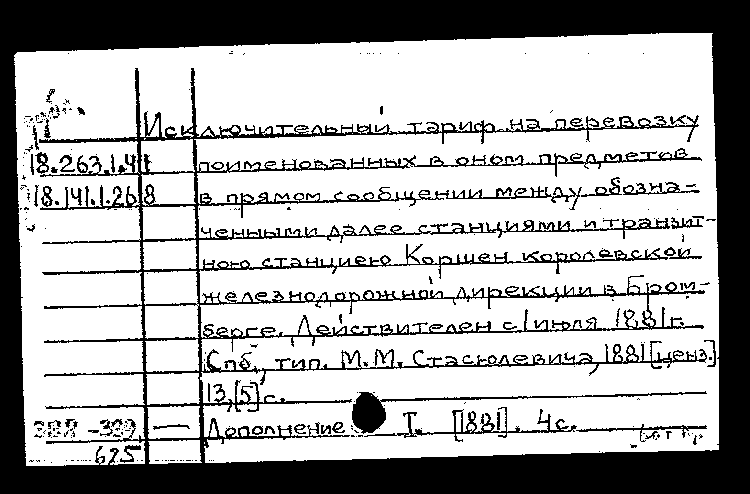 дубл.
Исключительный тариф на перевозку
18.263.1.41 поименованных в оном предметов
18.141.1.268 в прямом сообщении между обозна-
ченными далее станциями и транзит-
ною станциею Коршен королевской
железнодорожной дирекции в Бром-
берге. Действителен с 1 июля 1881 г.
Спб., тип. М.М. Стасюлевича, 1881 [ценз.]
13,[5] с.
— Дополнение I. [1881]. 4 с.
625